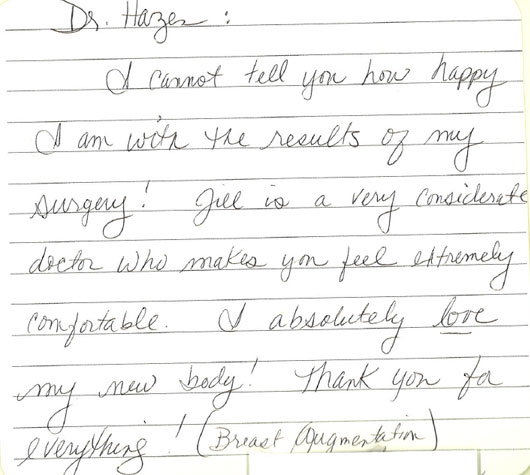 Dr. Hazen:
I cannot tell you how happy
I am with the results of my
surgery! Jill is a very considerate
doctor who makes you feel extremely
comfortable. I absolutely love
my new body! Thank you for
everything! (Breast Augmentation)